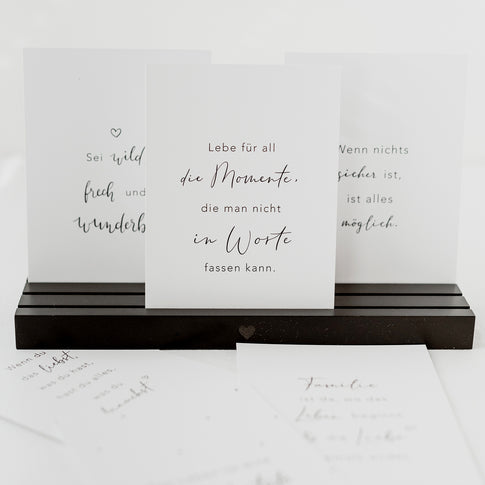 Sei wild
frech und
Lebe für all
die Momente,
die man nicht
in Worte
fassen kann.
Wenn nichts
sicher ist,
ist alles
möglich.
Wenn du
das liebst,
was du hast,
hast du alles,
was du
Familie
ist da, wo das
Leben beginnt
& die Liebe